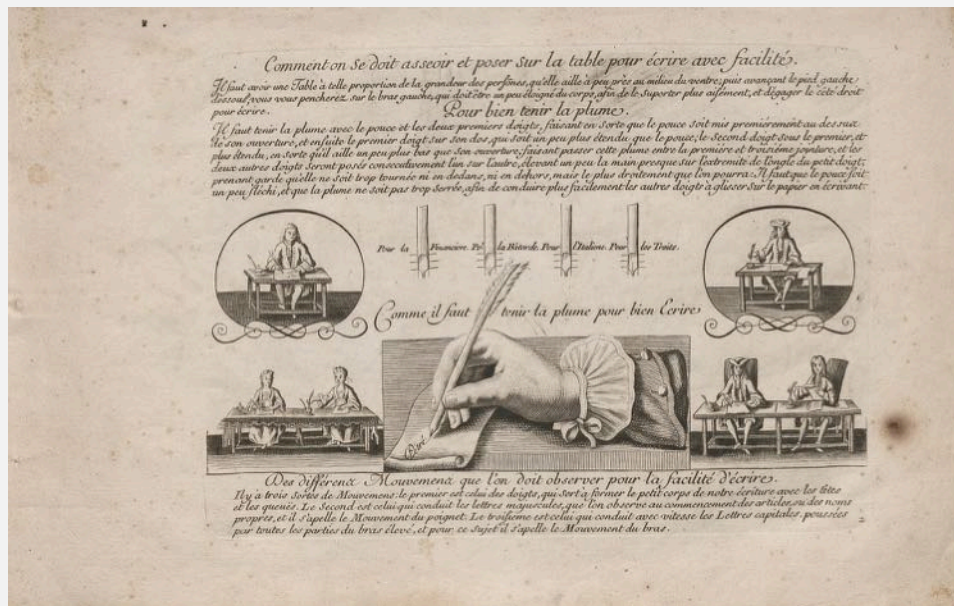 Comment on se doit asseoir et poser sur la table pour écrire avec facilité.
Il faut avoir une Table à telle proportion de la grandeur des persones, qu'elle aille à peu près au milieu du ventre; puis avançant le pied gauche
dessous, vous vous pencherez sur le bras gauche, qui doit être un peu éloigné du corps, afin de le Suporter plus aisément, et dégager le côté droit
pour écrire.
Pour bien tenir la plume.
Il faut tenir la plume avec le pouce et les deux premiers doigts, faisant en sorte que le pouce soit mis premièrement au dessus
de son ouverture, et ensuite le premier doigt sur son dos, qui soit un peu plus étendu que le pouce; le Second doigt sous le premier, et
plus étendu, en sorte qu'il aille un peu plus bas que son ouverture, faisant passer cette plume entre la première et troisième jointure, et les
deux autres doigts Seront posés consecutivement l'un sur l'autre, élevant un peu la main presque sur l'extremité de l'ongle du petit doigt;
prenant garde qu'elle ne soit trop tournée ni en dedans, ni en dehors, mais le plus droitement que l'on pourra: Il faut que le pouce soit
un peu fléchi, et que la plume ne soit pas trop Serrée, afin de conduire plus facilement les autres doigts à glisser sur le papier en écrivant.
Pour la Financière. Pr. la Bâtarde. Pour l'Italiene. Pour les Traits.
Comme il faut tenir la plume pour bien Ecrire
Des différens Mouvemens que l'on doit observer pour la facilité d'écrire.
Il y a trois Sortes de Mouvemens: le premier est celui des doigts, qui sert à former le petit corps de notre écriture avec les têtes
et les queües. Le Second est celui qui conduit les lettres majuscules, que l'on observe au commencement des articles, ou des noms
propres, et il s'apelle le Mouvement du poignet: Le troisième est celui qui conduit avec vitesse les Lettres capitales, poussées
par toutes les parties du bras élevé, et pour ce sujet il s'apelle le Mouvement du bras.
2